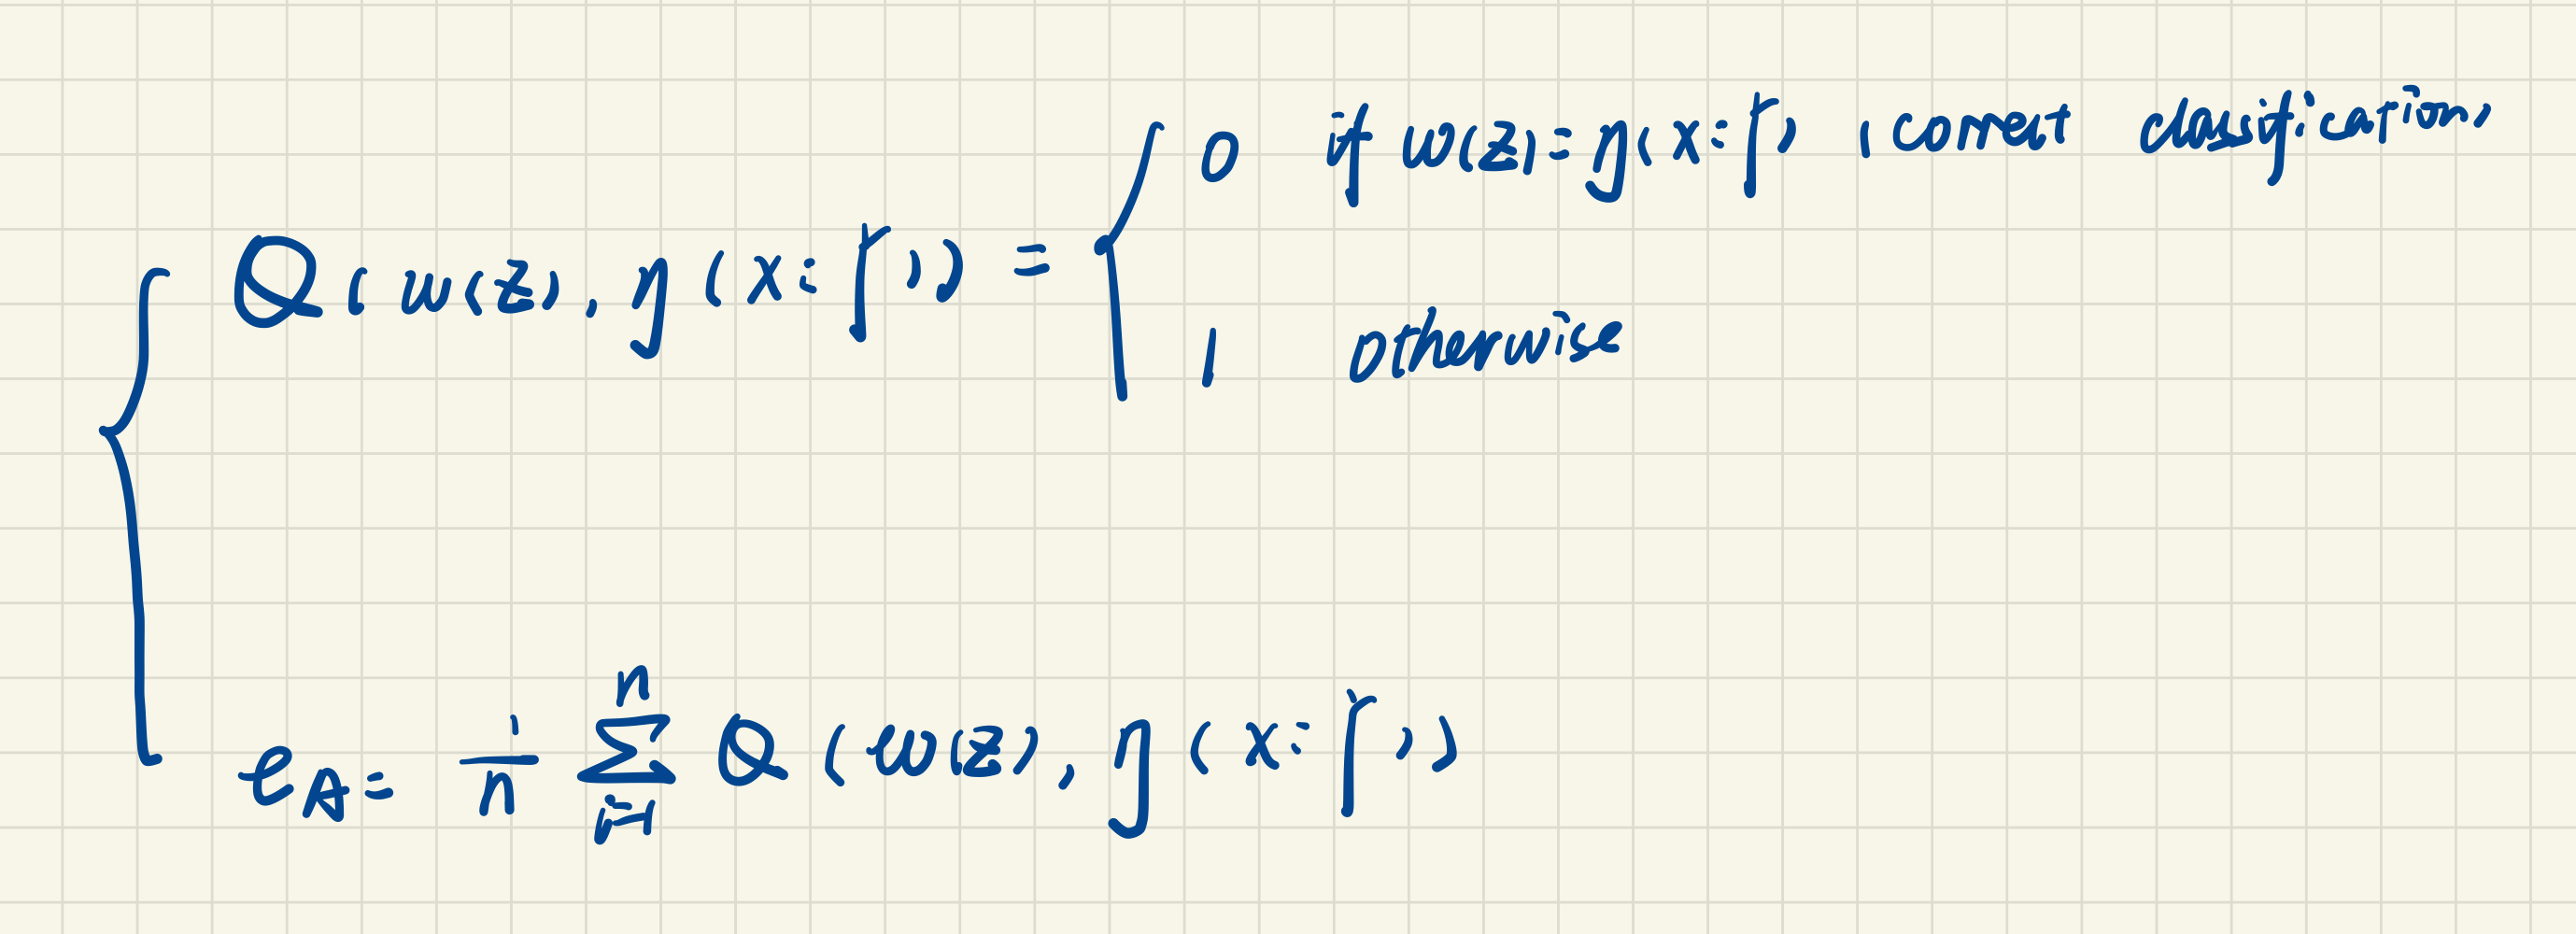 Q(w(z), η(x; Γ)) = { 0 if w(z) = η(x; Γ) (correct classification)
1 otherwise
e_A = 1/n Σ_{i=1}^{n} Q(w(z), η(x; Γ))